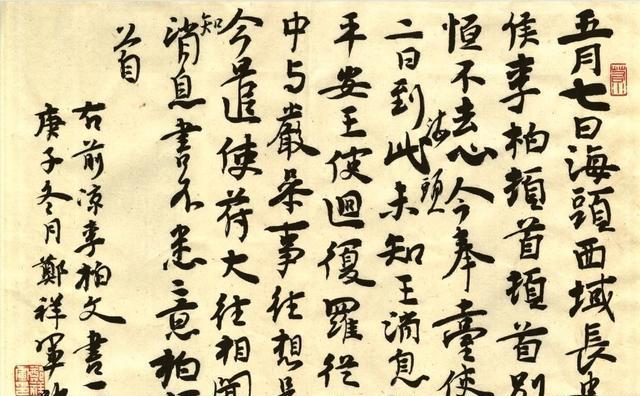 五月七日海頭西域長史
侯李柏頓首頓首別
恒不去心今奉臺使
二日到此未知王消息
海頭
平安王使迴復羅從
中与嚴參事往想是
今遣使苻大往相聞
知
消息書不悉意柏
首
右前凉李柏文書一
庚子冬月鄭祥軍